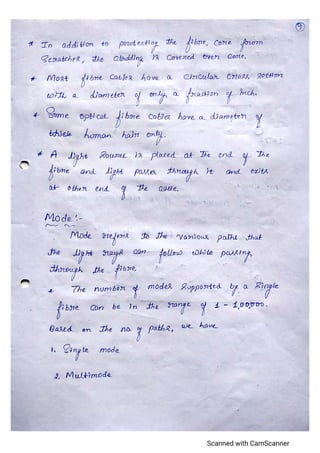 9
* In addition to protecting the fibre, Core from
Scratches, the cladding is Covered over Core.
* Most fibre Cables have a Circular Cross Section
with a diameter of only, a fraction of inch.
* Some optical fibre Cables have a diameter of
human hair only.
* A light Source is placed at The end of The
fibre and light passes through it and exits
at other end of the cable.
Mode:-
Mode refers to the various paths that
the light rays can follow while passing
through the fibre.
* The number of modes Supported by a Single
fibre Can be in the range of 1 - 1,00,000.
Based on The no. of paths, we have
1. Single mode
2. Multimode
Scanned with CamScanner